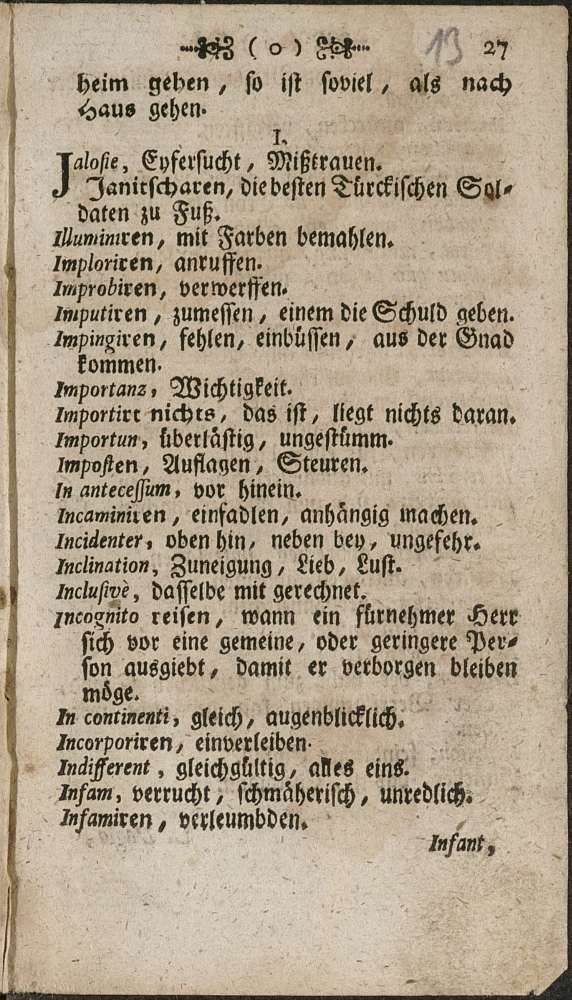 ( o ) 13 27
heim gehen, so ist soviel, als nach
Haus gehen.
I.
Jalosie, Eyfersucht, Mißtrauen.
Janitscharen, die besten Türckischen Sol-
daten zu Fuß.
Illuminiren, mit Farben bemahlen.
Imploriren, anruffen.
Improbiren, verwerffen.
Imputiren, zumessen, einem die Schuld geben.
Impingiren, fehlen, einbüssen, aus der Gnad
kommen.
Importanz, Wichtigkeit.
Importirt nichts, das ist, liegt nichts daran.
Importun, überlästig, ungestümm.
Imposten, Auflagen, Steuren.
In antecessum, vor hinein.
Incaminiren, einfadlen, anhängig machen.
Incidenter, oben hin, neben bey, ungefehr.
Inclination, Zuneigung, Lieb, Lust.
Inclusivè, dasselbe mit gerechnet.
Incognito reisen, wann ein fürnehmer Herr
sich vor eine gemeine, oder geringere Per-
son ausgiebt, damit er verborgen bleiben
möge.
In continenti, gleich, augenblicklich.
Incorporiren, einverleiben.
Indifferent, gleichgültig, alles eins.
Infam, verrucht, schmäherisch, unredlich.
Infamiren, verleumbden.
Infant,